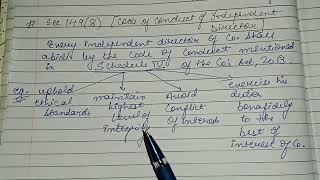 # Sec 149(8) [Code of Conduct of Independent
Director]
Every independent director of Co. shall
abide by the Code of Conduct mentioned
in Schedule IV of the Co's Act, 2013
eg. uphold
ethical
standards
maintain
highest
level of
integrity
Avoid
Conflict
Of Interests
exercise his
duties
bonafidely
to the
best of
interest of Co.